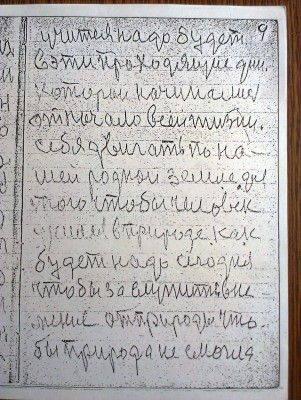 9
учится надо будет.
в эти проходящие дни.
которы начинались
от начало всей жизни.
себя двигать по на-
шей родной земле для
того чтобы человек
учился в природе. как
будет надо сегодня
чтобы заслужить вни
мение от природы чтo-
бы природа не смогла